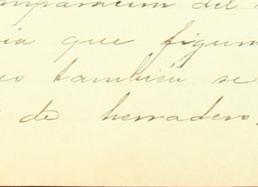 mparación del
que figur
también se
de herradero